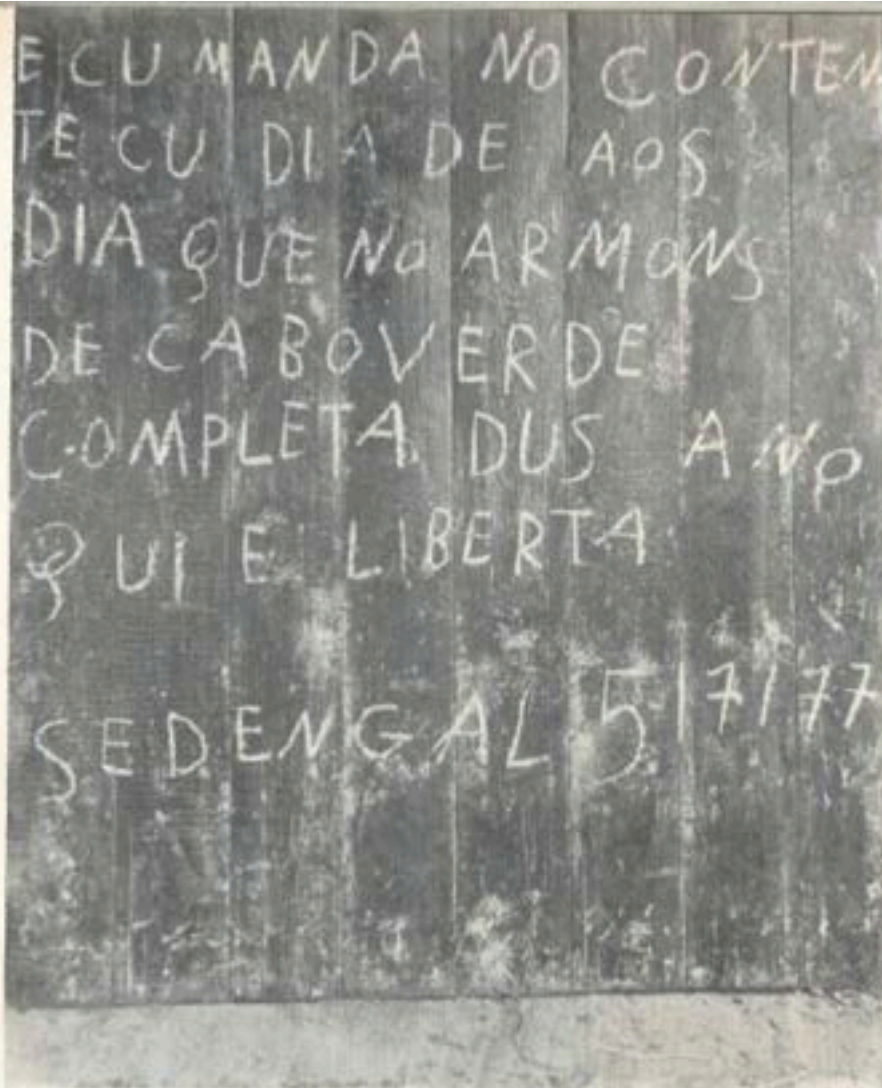 E CU MANDA NO CONTEN
TE CU DIA DE AOS
DIA QUE NO ARMONS
DE CABOVERDE
COMPLETA DUS ANO
QUI E LIBERTA
SEDENGAL 5/7/77